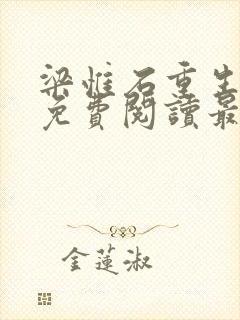 梁惟石重生
免費閱讀最
金蓮淑